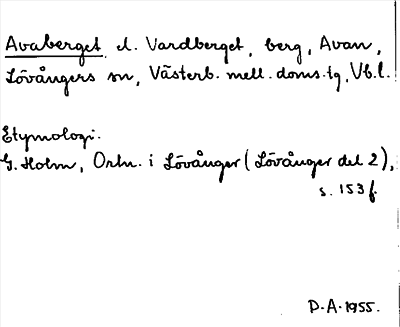 Avaberget el. Vardberget, berg, Avan,
Lövångers sn, Västerb. mell. doms.tg, Vb.l.
Etymologi.
G. Holm, Ortn. i Lövånger (Lövånger del 2),
s. 153 f.
D.A. 1955.